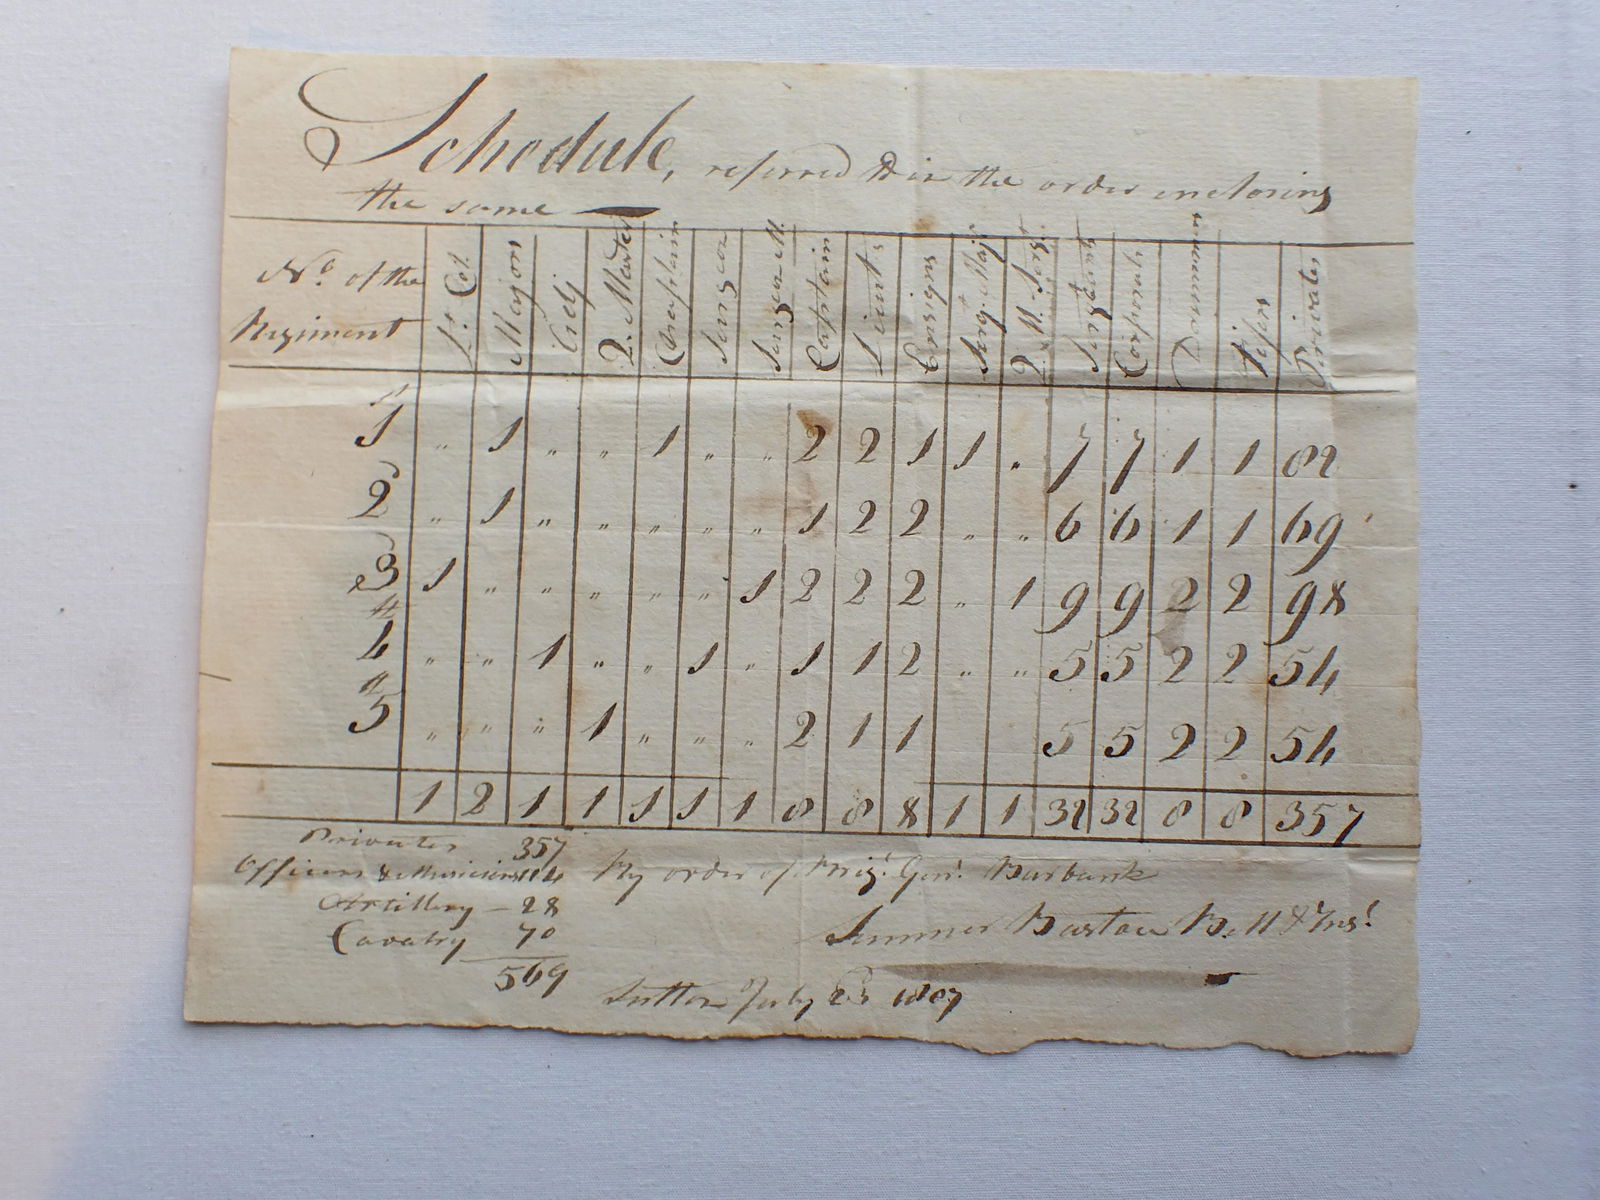 Schedule, referred to in the order enclosing
the same
No. of the Regiment | Lt. Col. | Majors | Adj | Q. Master | Chaplain | Surgeon | Surgeon M. | Captain | Lieuts | Ensigns | Sergt. Maj. | Q. M. Sergt | Sergeants | Corporals | Drummers | Fifers | Privates
1st | " | 1 | " | " | 1 | " | " | 2 | 2 | 1 | 1 | " | 7 | 7 | 1 | 1 | 82
2d | " | 1 | " | " | " | " | " | 1 | 2 | 2 | " | " | 6 | 6 | 1 | 1 | 69
3d | 1 | " | " | " | " | " | 1 | 2 | 2 | 2 | " | 1 | 9 | 9 | 2 | 2 | 98
4th | " | " | 1 | " | " | 1 | " | 1 | 1 | 2 | " | " | 5 | 5 | 2 | 2 | 54
5th | " | " | " | 1 | " | " | " | 2 | 1 | 1 | | | 5 | 5 | 2 | 2 | 54
1 | 2 | 1 | 1 | 1 | 1 | 1 | 8 | 8 | 8 | 1 | 1 | 32 | 32 | 8 | 8 | 357
Privates 357
Officers & Musicians 114
Artillery - 28
Cavalry 70
569
By order of Brig. Genl. Burbank
Sumner Bastow B. M & Insr.
Sutton July 23 1807